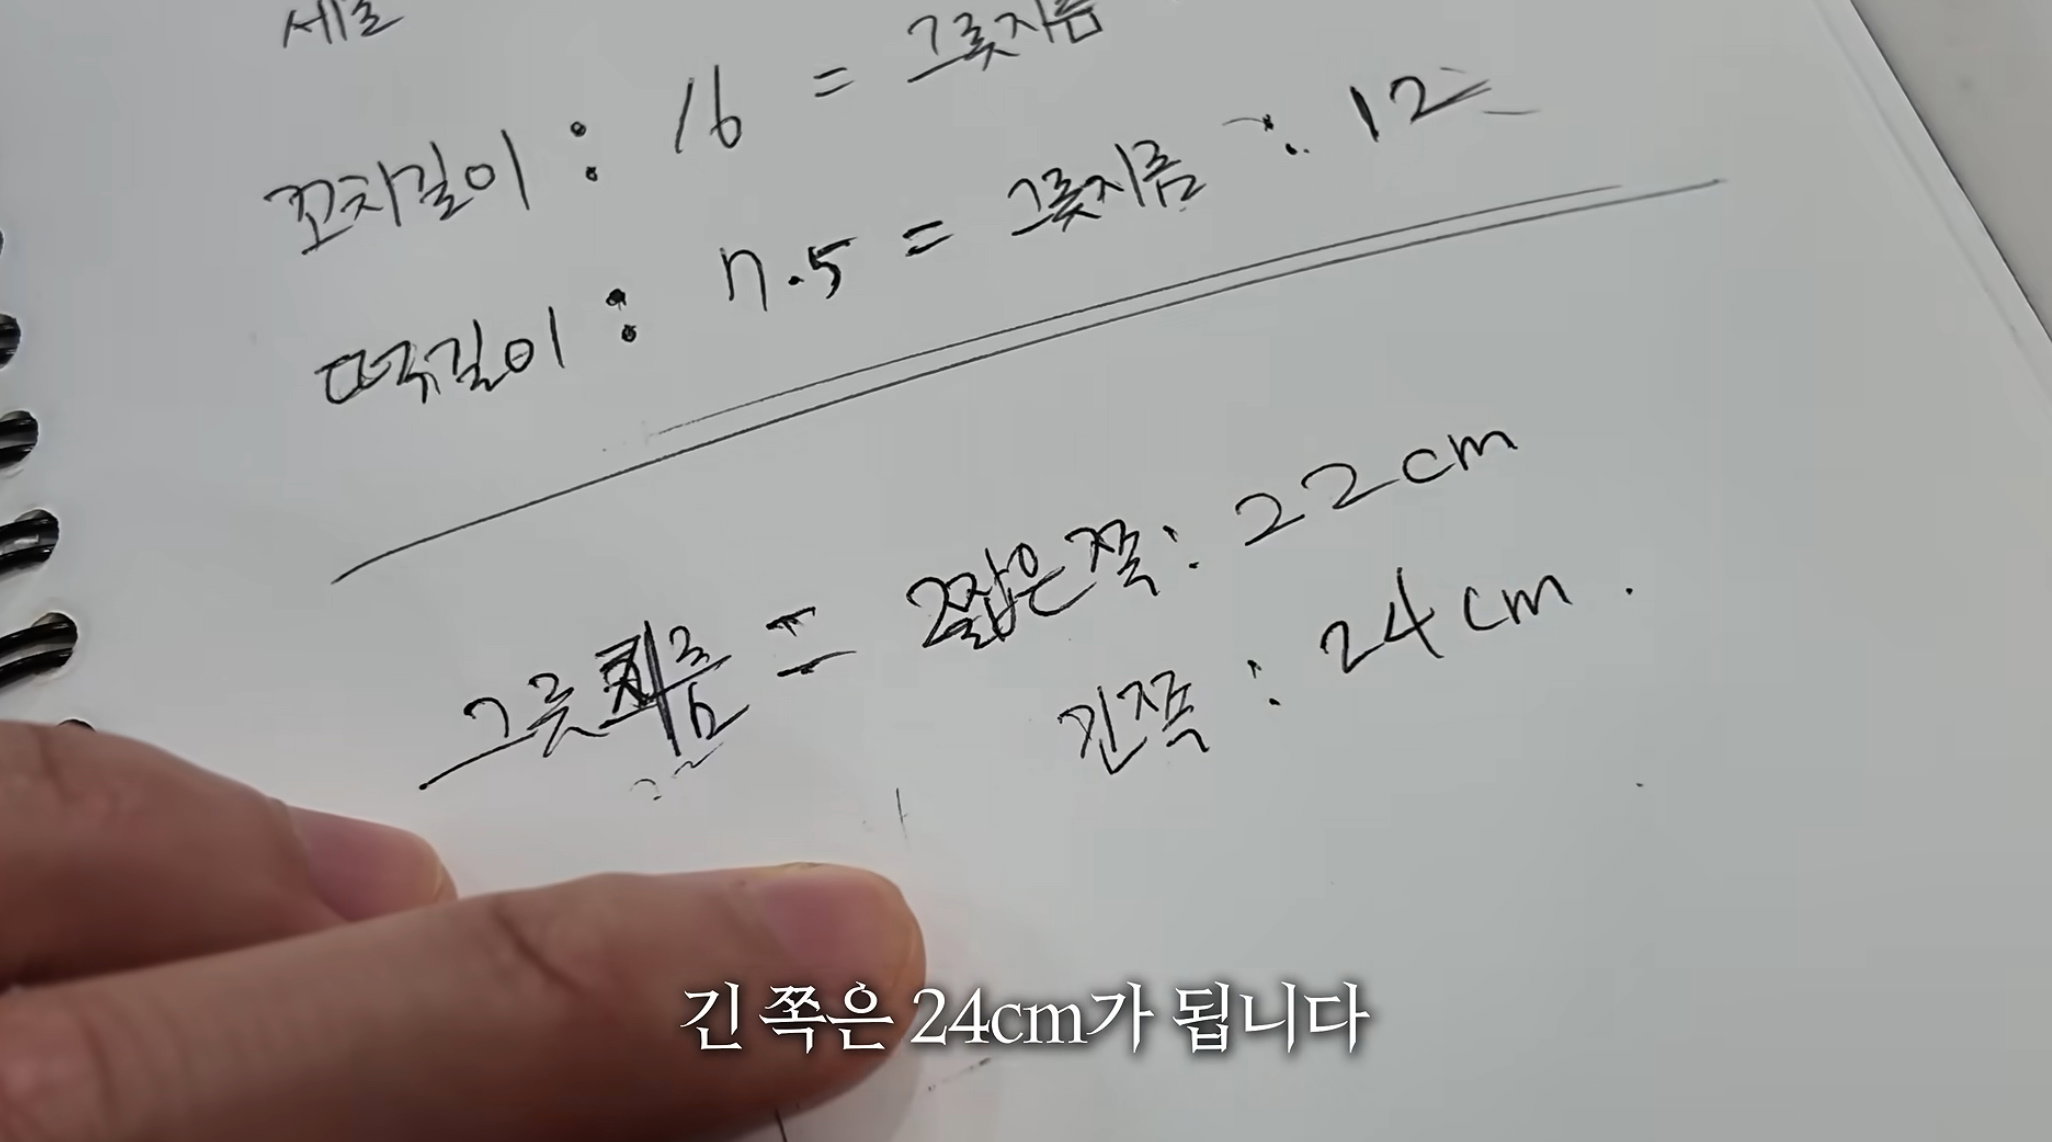 세로
꼬치길이 : 16 = 그릇지름
떡길이 : 7.5 = 그릇지름 : 12
그릇지름 = 짧은쪽 : 22cm
긴쪽 : 24cm.
긴 쪽은 24cm가 됩니다